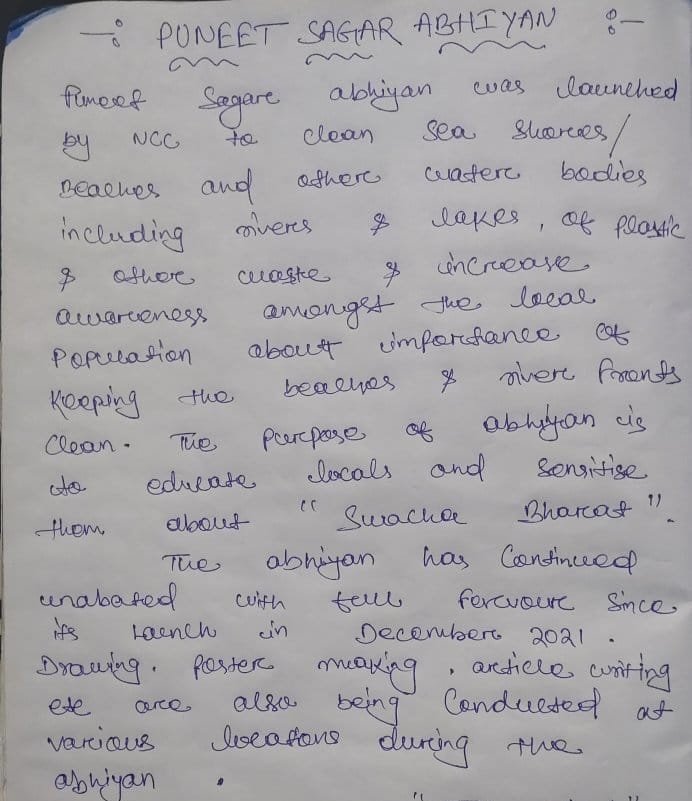 -: PUNEET SAGAR ABHIYAN :-
Puneet Sagar abhiyan was launched
by NCC to clean sea shores/
Beaches and other water bodies
including rivers & lakes, of plastic
& other waste & increase
awareness amongst the local
Population about importance of
Keeping the beaches & river fronts
Clean. The purpose of abhiyan is
to educate locals and sensitise
them about "Swacha Bharat".
The abhiyan has Continued
unabated with full fervour Since
its Launch in December 2021.
Drawing, Poster making, article writing
etc are also being Conducted at
various locations during the
abhiyan.